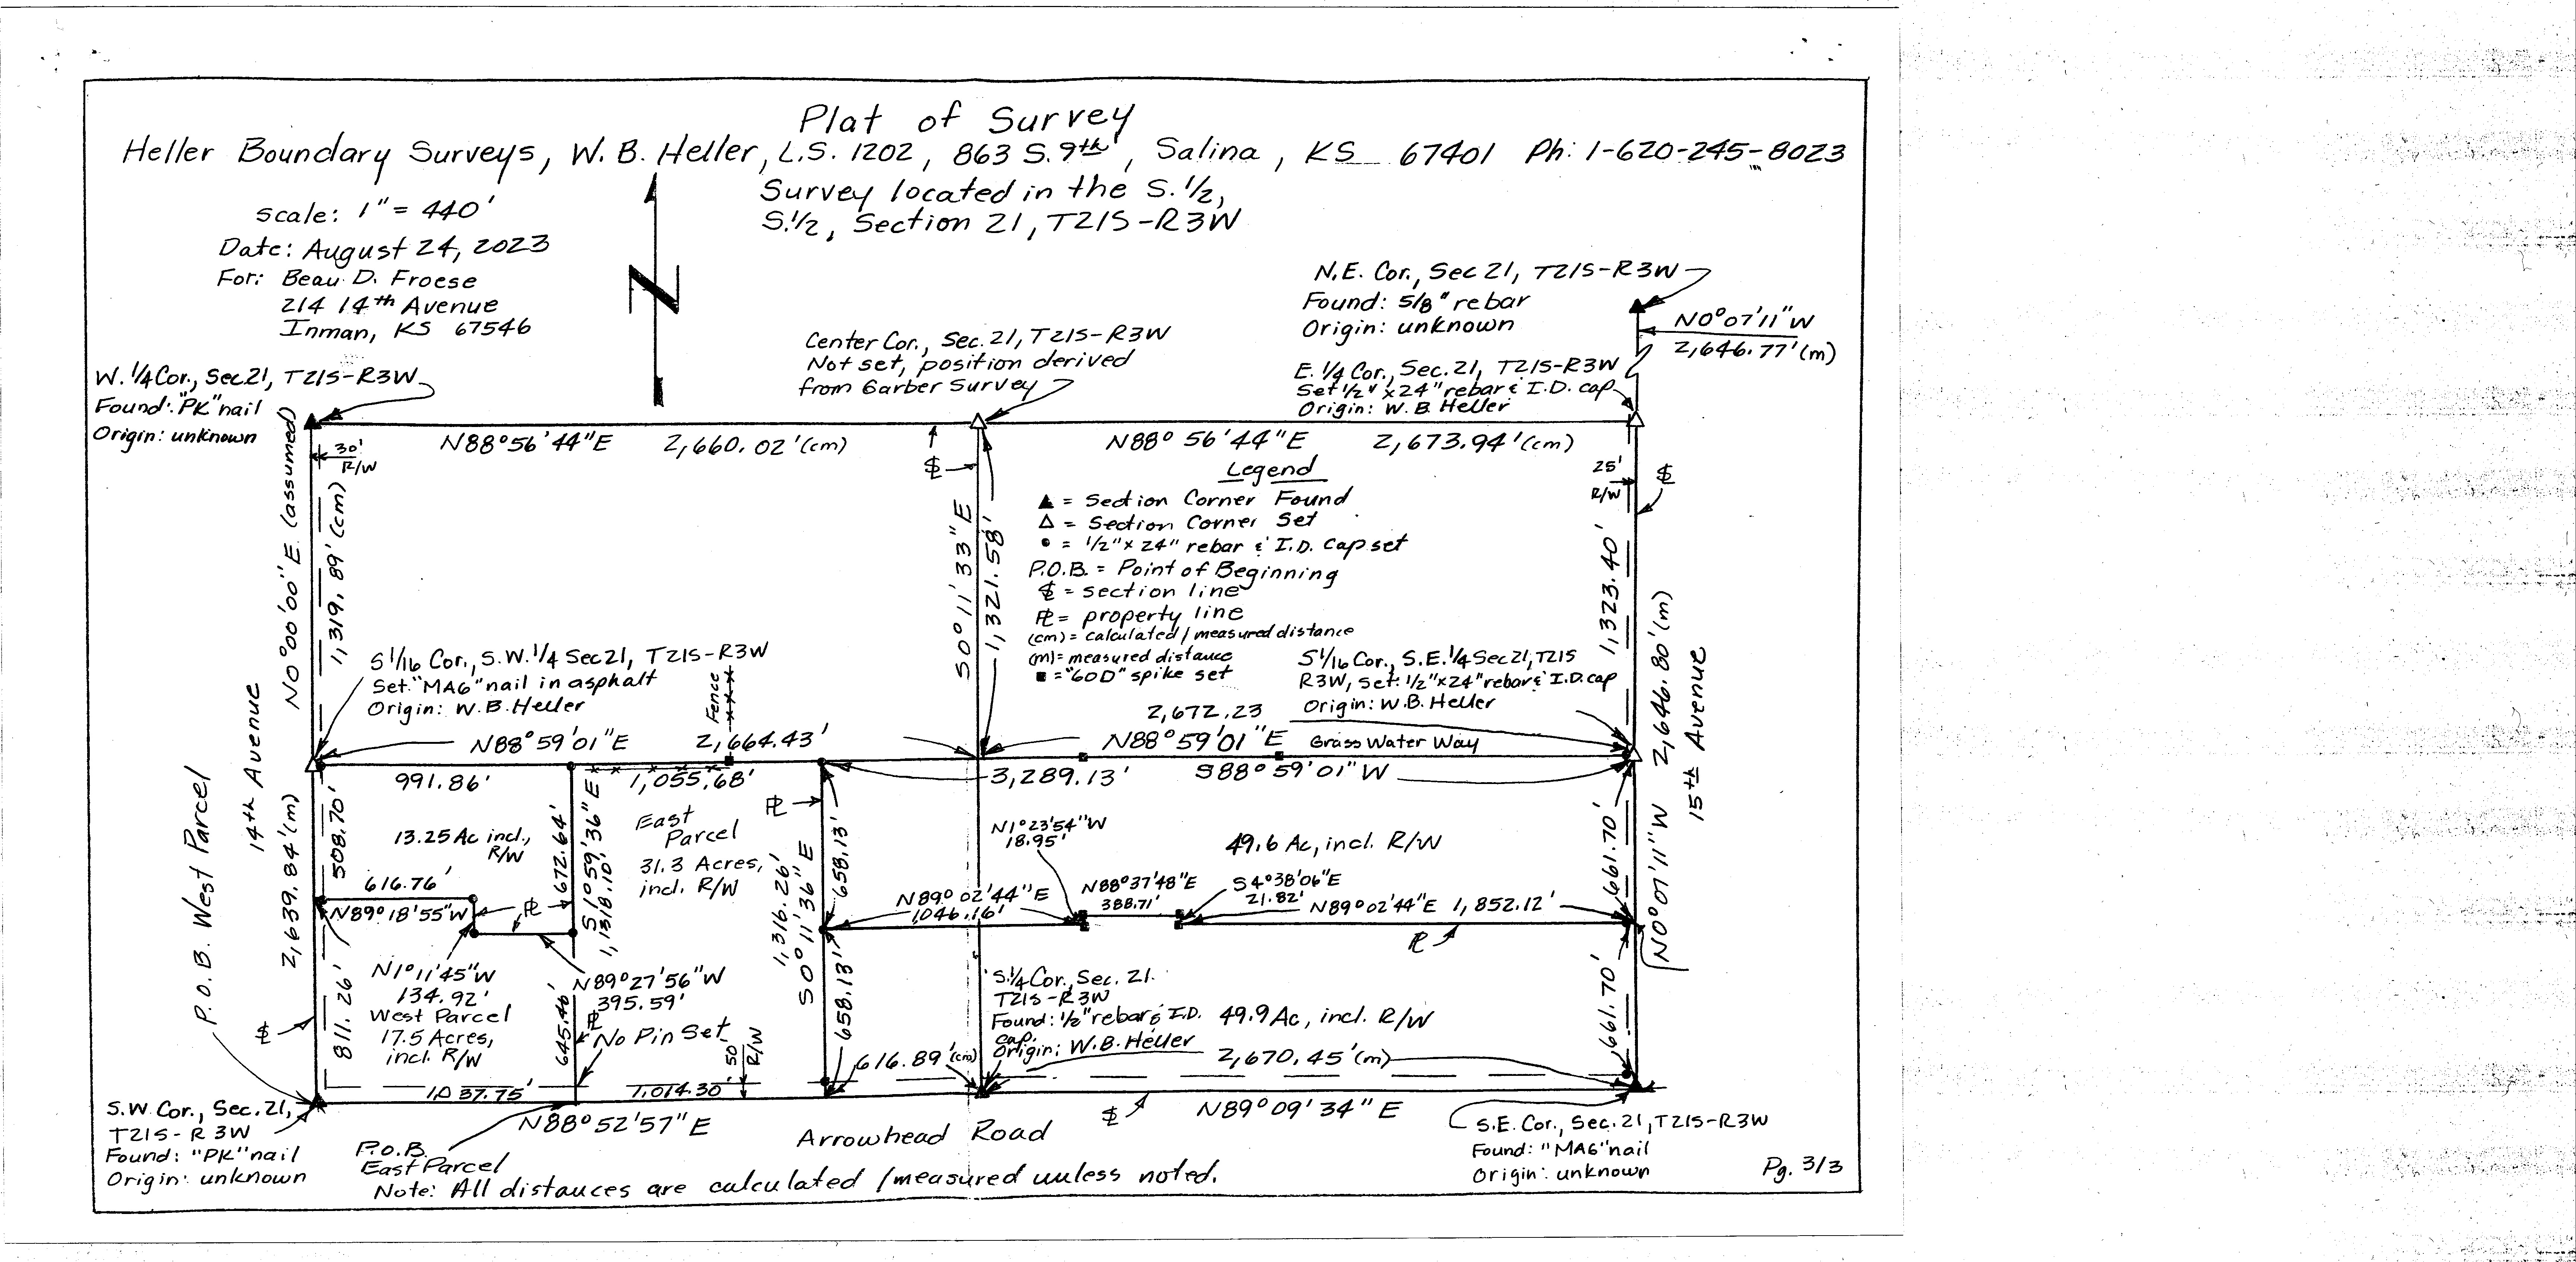 Plat of Survey
Heller Boundary Surveys, W. B. Heller, L.S. 1202, 863 S. 9th, Salina, KS 67401 Ph: 1-620-245-8023
Survey located in the S.1/2,
S.1/2, Section 21, T21S-R3W
scale: 1" = 440'
Date: August 24, 2023
For: Beau D. Froese
214 14th Avenue
Inman, KS 67546
N
N.E. Cor., Sec 21, T21S-R3W
Found: 5/8" rebar
Origin: unknown
N0°07'11"W
2,646.77'(m)
Center Cor., Sec. 21, T21S-R3W
Not set, position derived
from Garber Survey
E. 1/4 Cor., Sec. 21, T21S-R3W
Set 1/2" x 24" rebar & I.D. cap
Origin: W. B. Heller
W. 1/4 Cor., Sec 21, T21S-R3W
Found: "PK" nail
Origin: unknown
N88°56'44"E 2,660.02'(cm)
N88°56'44"E 2,673.94'(cm)
30'
R/W
25'
R/W
Legend
▲ = Section Corner Found
△ = Section Corner Set
• = 1/2" x 24" rebar & I.D. Cap set
P.O.B. = Point of Beginning
℄ = section line
PL = property line
(cm) = calculated / measured distance
(m) = measured distance
■ = "60D" spike set
N0°00'00"E (assumed)
1,319.89'(cm)
S0°11'33"E
1,321.58'
1,323.40'
2,646.80'(m)
15th Avenue
14th Avenue
2,639.84'(m)
P.O.B. West Parcel
S 1/16 Cor., S.W. 1/4 Sec 21, T21S-R3W
Set "MAG" nail in asphalt
Origin: W.B. Heller
Fence
S 1/16 Cor., S.E. 1/4 Sec 21, T21S
R3W, Set: 1/2" x 24" rebar & I.D. cap
Origin: W.B. Heller
N88°59'01"E 2,664.43'
2,672.23
N88°59'01"E Grass Water Way
991.86'
1,055.68'
3,289.13' S88°59'01"W
508.70'
13.25 Ac incl.,
R/W
672.64'
S1°59'36"E
1,318.10'
East
Parcel
31.3 Acres,
incl. R/W
PL
1,316.26'
S0°11'36"E
658.13'
N1°23'54"W
18.95'
49.6 Ac, incl. R/W
661.70'
N0°07'11"W
616.76'
N89°18'55"W
PL
N89°02'44"E
1,046.16'
N88°37'48"E
388.71'
S4°38'06"E
21.82'
N89°02'44"E 1,852.12'
PL
N1°11'45"W
134.92'
West Parcel
17.5 Acres,
incl. R/W
N89°27'56"W
395.59'
PL
No Pin Set
645.46'
811.26'
℄
50'
R/W
658.13'
S.1/4 Cor., Sec. 21.
T21S-R3W
Found: 1/2" rebar & I.D.
cap.
Origin: W.B. Heller
49.9 Ac, incl. R/W
661.70'
616.89'(cm)
2,670.45'(m)
1,037.75'
1,014.30'
N88°52'57"E
℄
N89°09'34"E
S.W. Cor., Sec. 21,
T21S-R3W
Found: "PK" nail
Origin: unknown
P.O.B.
East Parcel
Arrowhead Road
S.E. Cor., Sec. 21, T21S-R3W
Found: "MAG" nail
Origin: unknown
Note: All distances are calculated / measured unless noted.
Pg. 3/3